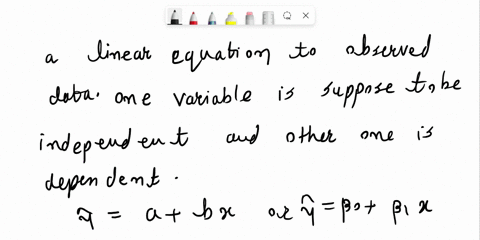 a linear equation to observed
data. one variable is suppose to be
independent and other one is
dependent.
ŷ = a + bx or ŷ = β0 + β1 x